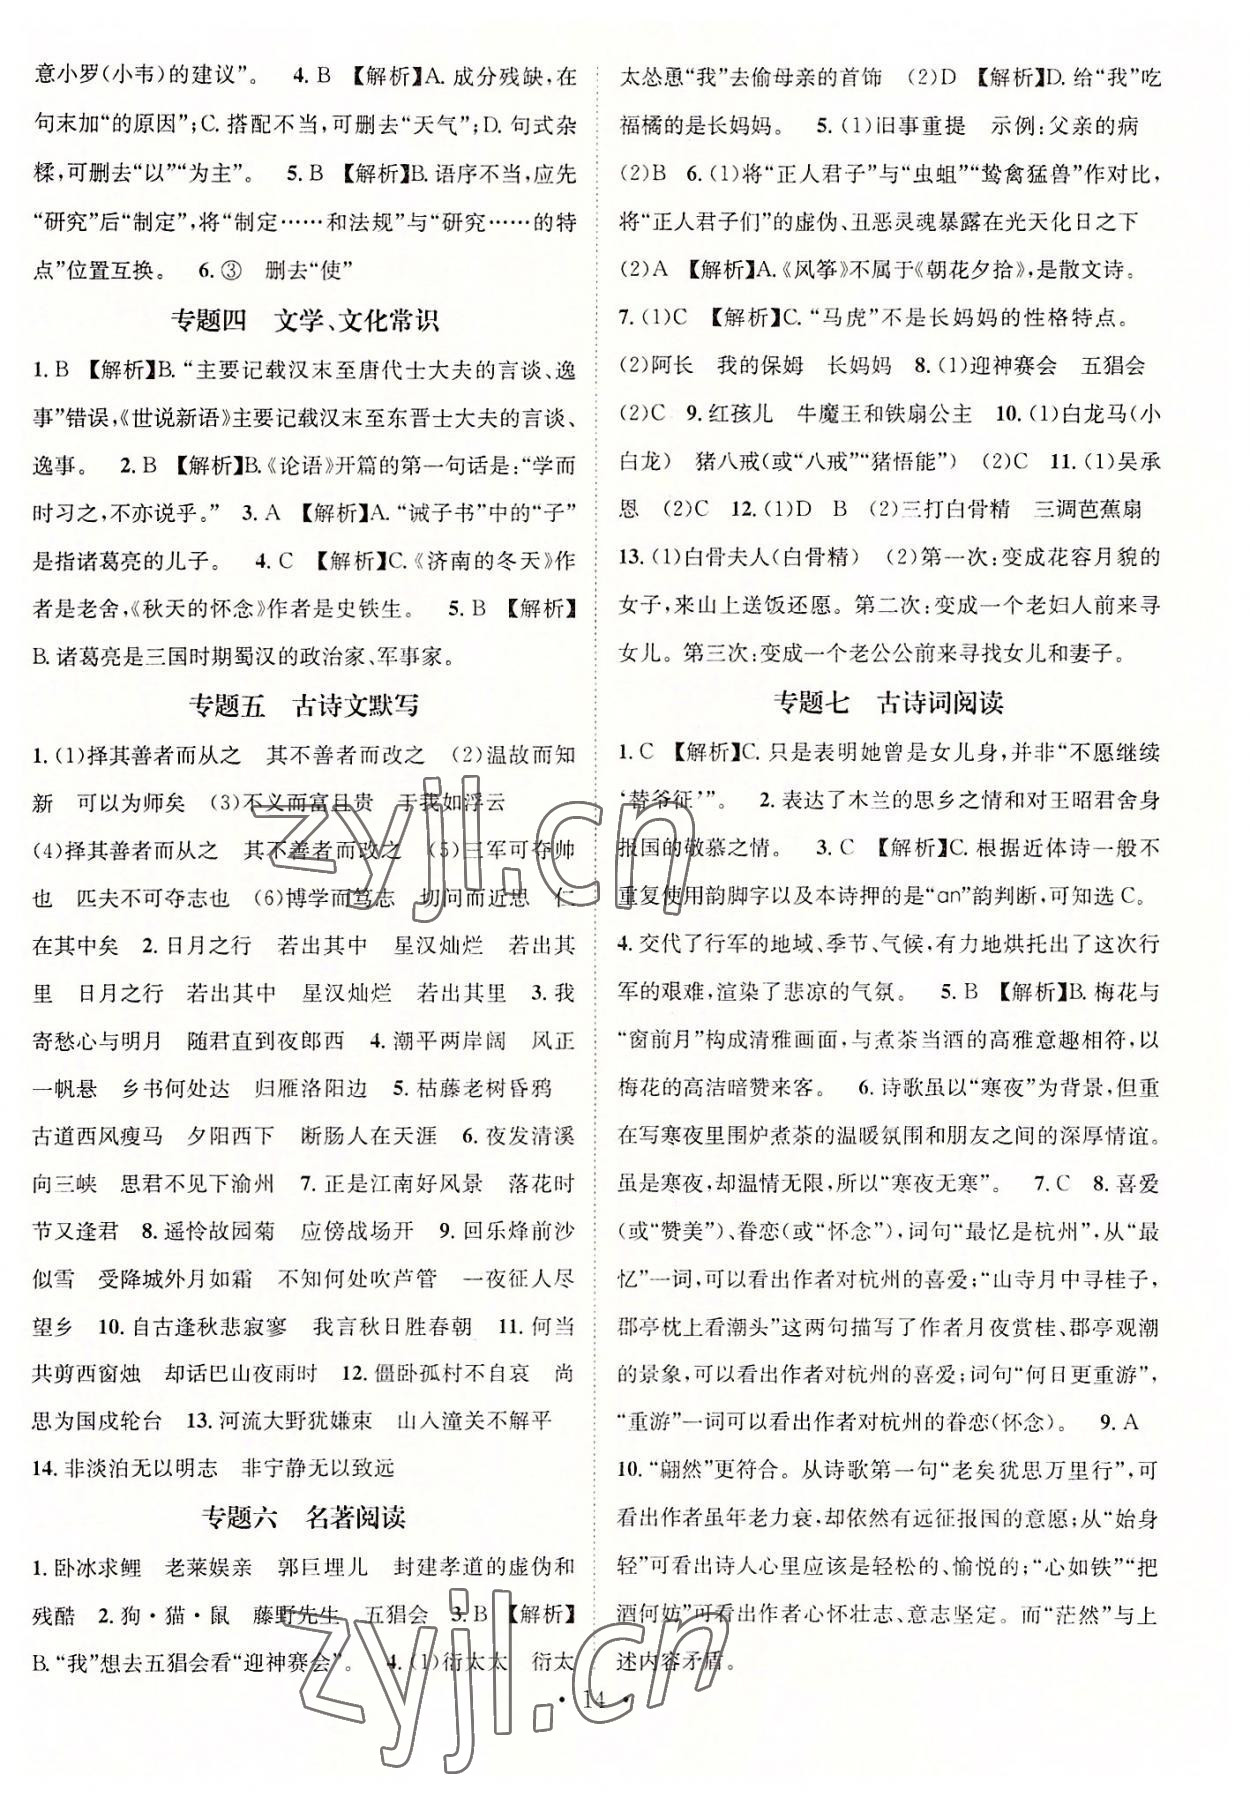 意小罗(小韦)的建议”。 4. B 【解析】A. 成分残缺,在
句末加“的原因”;C. 搭配不当,可删去“天气”;D. 句式杂
糅,可删去“以”“为主”。 5. B 【解析】B. 语序不当,应先
“研究”后“制定”,将“制定……和法规”与“研究……的特
点”位置互换。 6. ③ 删去“使”
专题四 文学、文化常识
1. B 【解析】B. “主要记载汉末至唐代士大夫的言谈、逸
事”错误,《世说新语》主要记载汉末至东晋士大夫的言谈、
逸事。 2. B 【解析】B.《论语》开篇的第一句话是:“学而
时习之,不亦说乎。” 3. A 【解析】A. “诫子书”中的“子”
是指诸葛亮的儿子。 4. C 【解析】C.《济南的冬天》作
者是老舍,《秋天的怀念》作者是史铁生。 5. B 【解析】
B. 诸葛亮是三国时期蜀汉的政治家、军事家。
专题五 古诗文默写
1. (1)择其善者而从之 其不善者而改之 (2)温故而知
新 可以为师矣 (3)不义而富且贵 于我如浮云
(4)择其善者而从之 其不善者而改之 (5)三军可夺帅
也 匹夫不可夺志也 (6)博学而笃志 切问而近思 仁
在其中矣 2. 日月之行 若出其中 星汉灿烂 若出其
里 日月之行 若出其中 星汉灿烂 若出其里 3. 我
寄愁心与明月 随君直到夜郎西 4. 潮平两岸阔 风正
一帆悬 乡书何处达 归雁洛阳边 5. 枯藤老树昏鸦
古道西风瘦马 夕阳西下 断肠人在天涯 6. 夜发清溪
向三峡 思君不见下渝州 7. 正是江南好风景 落花时
节又逢君 8. 遥怜故园菊 应傍战场开 9. 回乐烽前沙
似雪 受降城外月如霜 不知何处吹芦管 一夜征人尽
望乡 10. 自古逢秋悲寂寥 我言秋日胜春朝 11. 何当
共剪西窗烛 却话巴山夜雨时 12. 僵卧孤村不自哀 尚
思为国戍轮台 13. 河流大野犹嫌束 山入潼关不解平
14. 非淡泊无以明志 非宁静无以致远
专题六 名著阅读
1. 卧冰求鲤 老莱娱亲 郭巨埋儿 封建孝道的虚伪和
残酷 2. 狗·猫·鼠 藤野先生 五猖会 3. B 【解析】
B. “我”想去五猖会看“迎神赛会”。 4. (1)衍太太 衍太
太怂恿“我”去偷母亲的首饰 (2)D 【解析】D. 给“我”吃
福橘的是长妈妈。 5. (1)旧事重提 示例:父亲的病
(2)B 6. (1)将“正人君子”与“虫蛆”“鸷禽猛兽”作对比,
将“正人君子们”的虚伪、丑恶灵魂暴露在光天化日之下
(2)A 【解析】A.《风筝》不属于《朝花夕拾》,是散文诗。
7. (1)C 【解析】C. “马虎”不是长妈妈的性格特点。
(2)阿长 我的保姆 长妈妈 8. (1)迎神赛会 五猖会
(2)C 9. 红孩儿 牛魔王和铁扇公主 10. (1)白龙马(小
白龙) 猪八戒(或“八戒”“猪悟能”) (2)C 11. (1)吴承
恩 (2)C 12. (1)D B (2)三打白骨精 三调芭蕉扇
13. (1)白骨夫人(白骨精) (2)第一次:变成花容月貌的
女子,来山上送饭还愿。第二次:变成一个老妇人前来寻
女儿。第三次:变成一个老公公前来寻找女儿和妻子。
专题七 古诗词阅读
1. C 【解析】C. 只是表明她曾是女儿身,并非“不愿继续
‘替爷征’”。 2. 表达了木兰的思乡之情和对王昭君舍身
报国的敬慕之情。 3. C 【解析】C. 根据近体诗一般不
重复使用韵脚字以及本诗押的是“an”韵判断,可知选 C。
4. 交代了行军的地域、季节、气候,有力地烘托出了这次行
军的艰难,渲染了悲凉的气氛。 5. B 【解析】B. 梅花与
“窗前月”构成清雅画面,与煮茶当酒的高雅意趣相符,以
梅花的高洁暗赞来客。 6. 诗歌虽以“寒夜”为背景,但重
在写寒夜里围炉煮茶的温暖氛围和朋友之间的深厚情谊。
虽是寒夜,却温情无限,所以“寒夜无寒”。 7. C 8. 喜爱
(或“赞美”)、眷恋(或“怀念”),词句“最忆是杭州”,从“最
忆”一词,可以看出作者对杭州的喜爱;“山寺月中寻桂子,
郡亭枕上看潮头”这两句描写了作者月夜赏桂、郡亭观潮
的景象,可以看出作者对杭州的喜爱;词句“何日更重游”,
“重游”一词可以看出作者对杭州的眷恋(怀念)。 9. A
10. “翩然”更符合。从诗歌第一句“老矣犹思万里行”,可
看出作者虽年老力衰,却依然有远征报国的意愿;从“始身
轻”可看出诗人心里应该是轻松的、愉悦的;“心如铁”“把
酒何妨”可看出作者心怀壮志、意志坚定。而“茫然”与上
述内容矛盾。
· 14 ·
zyjl.cn
zyjl.cn